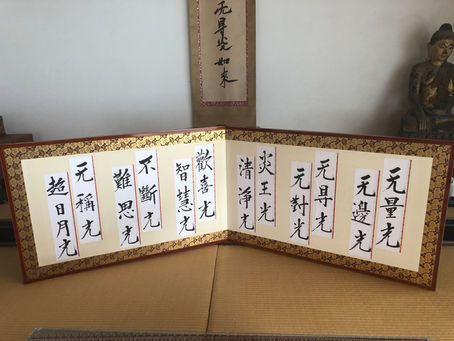 无㝵光如來
无量光
无邊光
无㝵光
无對光
炎王光
清淨光
歡喜光
智慧光
不斷光
難思光
无稱光
超日月光